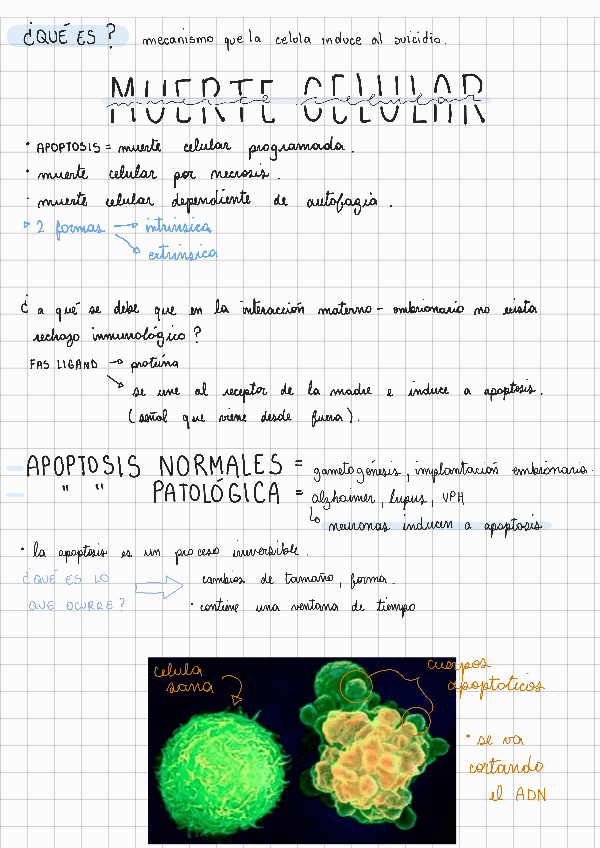 ¿QUÉ ES? mecanismo que la celula induce al suicidio.
MUERTE CELULAR
· APOPTOSIS = muerte celular programada.
· muerte celular por necrosis.
· muerte celular dependiente de autofagia.
2 formas → intrinsica
→ extrinsica
¿a qué se debe que en la interacción materno - embrionario no exista
rechazo inmunológico?
FAS LIGAND → proteína
→ se une al receptor de la madre e induce a apoptosis.
(señal que viene desde fuera).
APOPTOSIS NORMALES = gametogénesis, implantación embrionaria.
" " PATOLÓGICA = alzhaimer, lupus, VPH
↳ neuronas inducen a apoptosis
· la apoptosis es un proceso irreversible.
¿QUÉ ES LO cambios de tamaño, forma.
QUE OCURRE? · contiene una ventana de tiempo
celula
sana
cuerpos
apoptoticos
· se va
cortando
el ADN